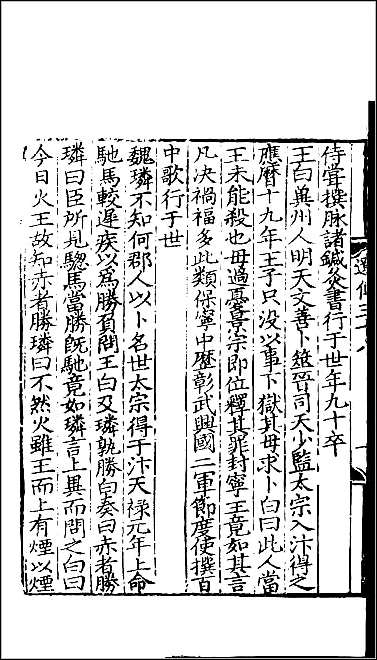 侍嘗撰脉諸鍼灸書行于世年九十卒
王白冀州人明天文善卜筮晉司天少監太宗入汴得之
應曆十九年王子只沒以事下獄其母求卜白曰此人當
王未能殺也毋過憂景宗即位釋其罪封寧王竟如其言
凡决禍福多此類保寧中歷彰武興國二軍節度使撰百
中歌行于世
魏璘不知何郡人以卜名世太宗得于汴天祿元年上命
馳馬較遲疾以爲勝負問王白及璘孰勝白奏曰赤者勝
璘曰臣所見驄馬當勝旣馳竟如璘言上異而問之白曰
今日火王故知赤者勝璘曰不然火雖王而上有煙以煙